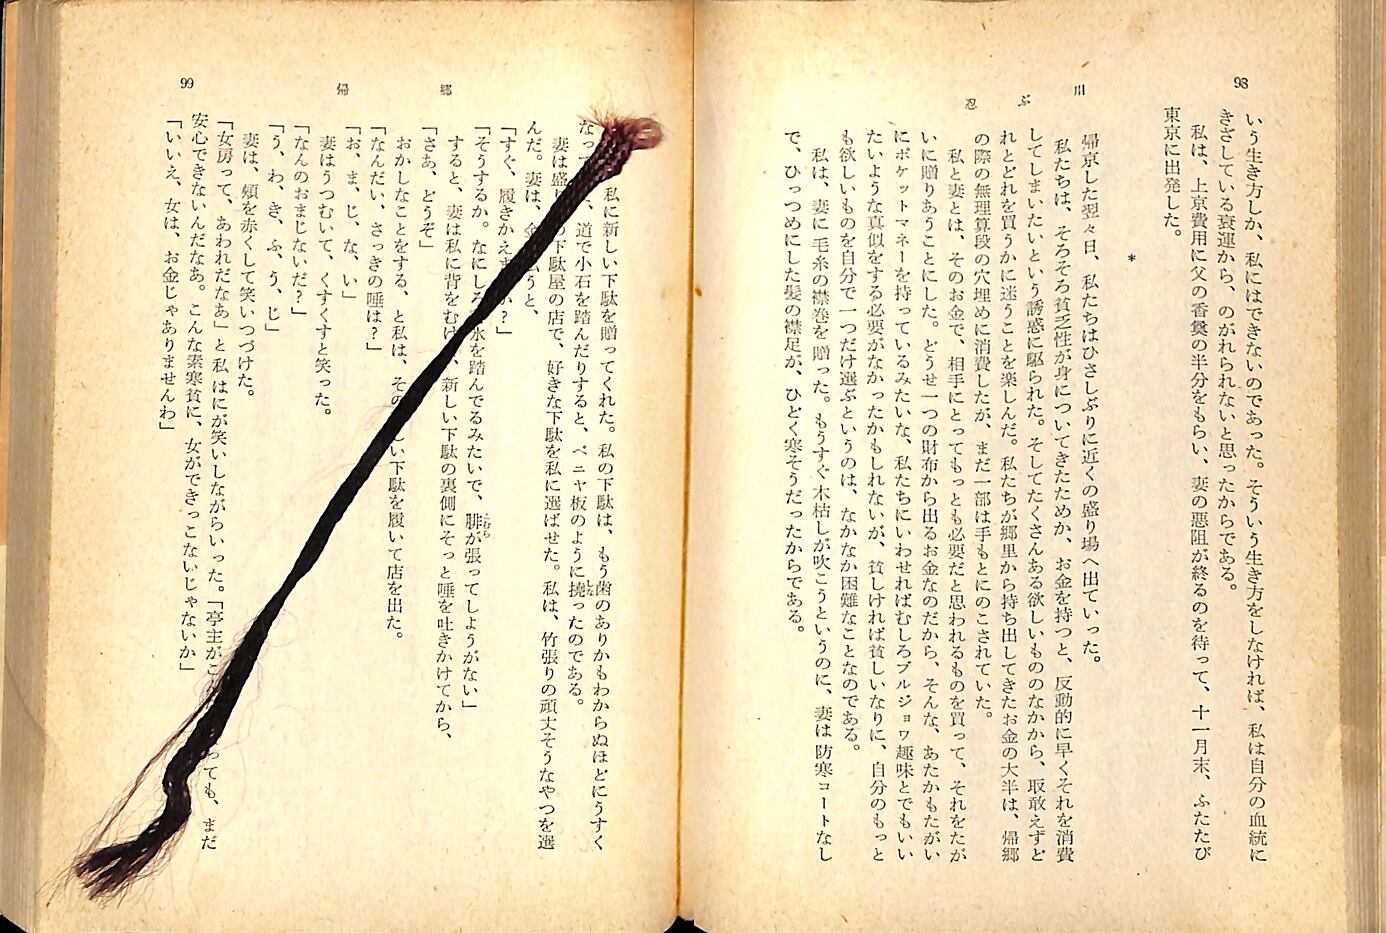 98
忍ぶ川
いう生き方しか、私にはできないのであった。そういう生き方をしなければ、私は自分の血統に
きざしている衰運から、のがれられないと思ったからである。
私は、上京費用に父の香奠の半分をもらい、妻の悪阻が終るのを待って、十一月末、ふたたび
東京に出発した。
*
帰京した翌々日、私たちはひさしぶりに近くの盛り場へ出ていった。
私たちは、そろそろ貧乏性が身についてきたためか、お金を持つと、反動的に早くそれを消費
してしまいたいという誘惑に駆られた。そしてたくさんある欲しいもののなかから、取敢えずど
れとどれを買うかに迷うことを楽しんだ。私たちが郷里から持ち出してきたお金の大半は、帰郷
の際の無理算段の穴埋めに消費したが、まだ一部は手もとにのこされていた。
私と妻とは、そのお金で、相手にとってもっとも必要だと思われるものを買って、それをたが
いに贈りあうことにした。どうせ一つの財布から出るお金なのだから、そんな、あたかもたがい
にポケットマネーを持っているみたいな、私たちにいわせればむしろブルジョワ趣味とでもいい
たいような真似をする必要がなかったかもしれないが、貧しければ貧しいなりに、自分のもっと
も欲しいものを自分で一つだけ選ぶというのは、なかなか困難なことなのである。
私は、妻に毛糸の襟巻を贈った。もうすぐ木枯しが吹こうというのに、妻は防寒コートなし
で、ひっつめにした髪の襟足が、ひどく寒そうだったからである。
99
帰郷
私に新しい下駄を贈ってくれた。私の下駄は、もう歯のありかもわからぬほどにうすく
なって、道で小石を踏んだりすると、ベニヤ板のように撓ったのである。
妻は盛り の下駄屋の店で、好きな下駄を私に選ばせた。私は、竹張りの頑丈そうなやつを選
んだ。妻は、金 うと、
「すぐ、履きかえま か?」
「そうするか。なにしろ 水を踏んでるみたいで、腓が張ってしようがない」
すると、妻は私に背をむけ、新しい下駄の裏側にそっと唾を吐きかけてから、
「さあ、どうぞ」
おかしなことをする、と私は、その しい下駄を履いて店を出た。
「なんだい、さっきの唾は?」
「お、ま、じ、な、い」
妻はうつむいて、くすくすと笑った。
「なんのおまじないだ?」
「う、わ、き、ふ、う、じ」
妻は、頬を赤くして笑いつづけた。
「女房って、あわれだなあ」と私はにが笑いしながらいった。「亭主がこ っても、まだ
安心できないんだなあ。こんな素寒貧に、女ができっこないじゃないか」
「いいえ、女は、お金じゃありませんわ」